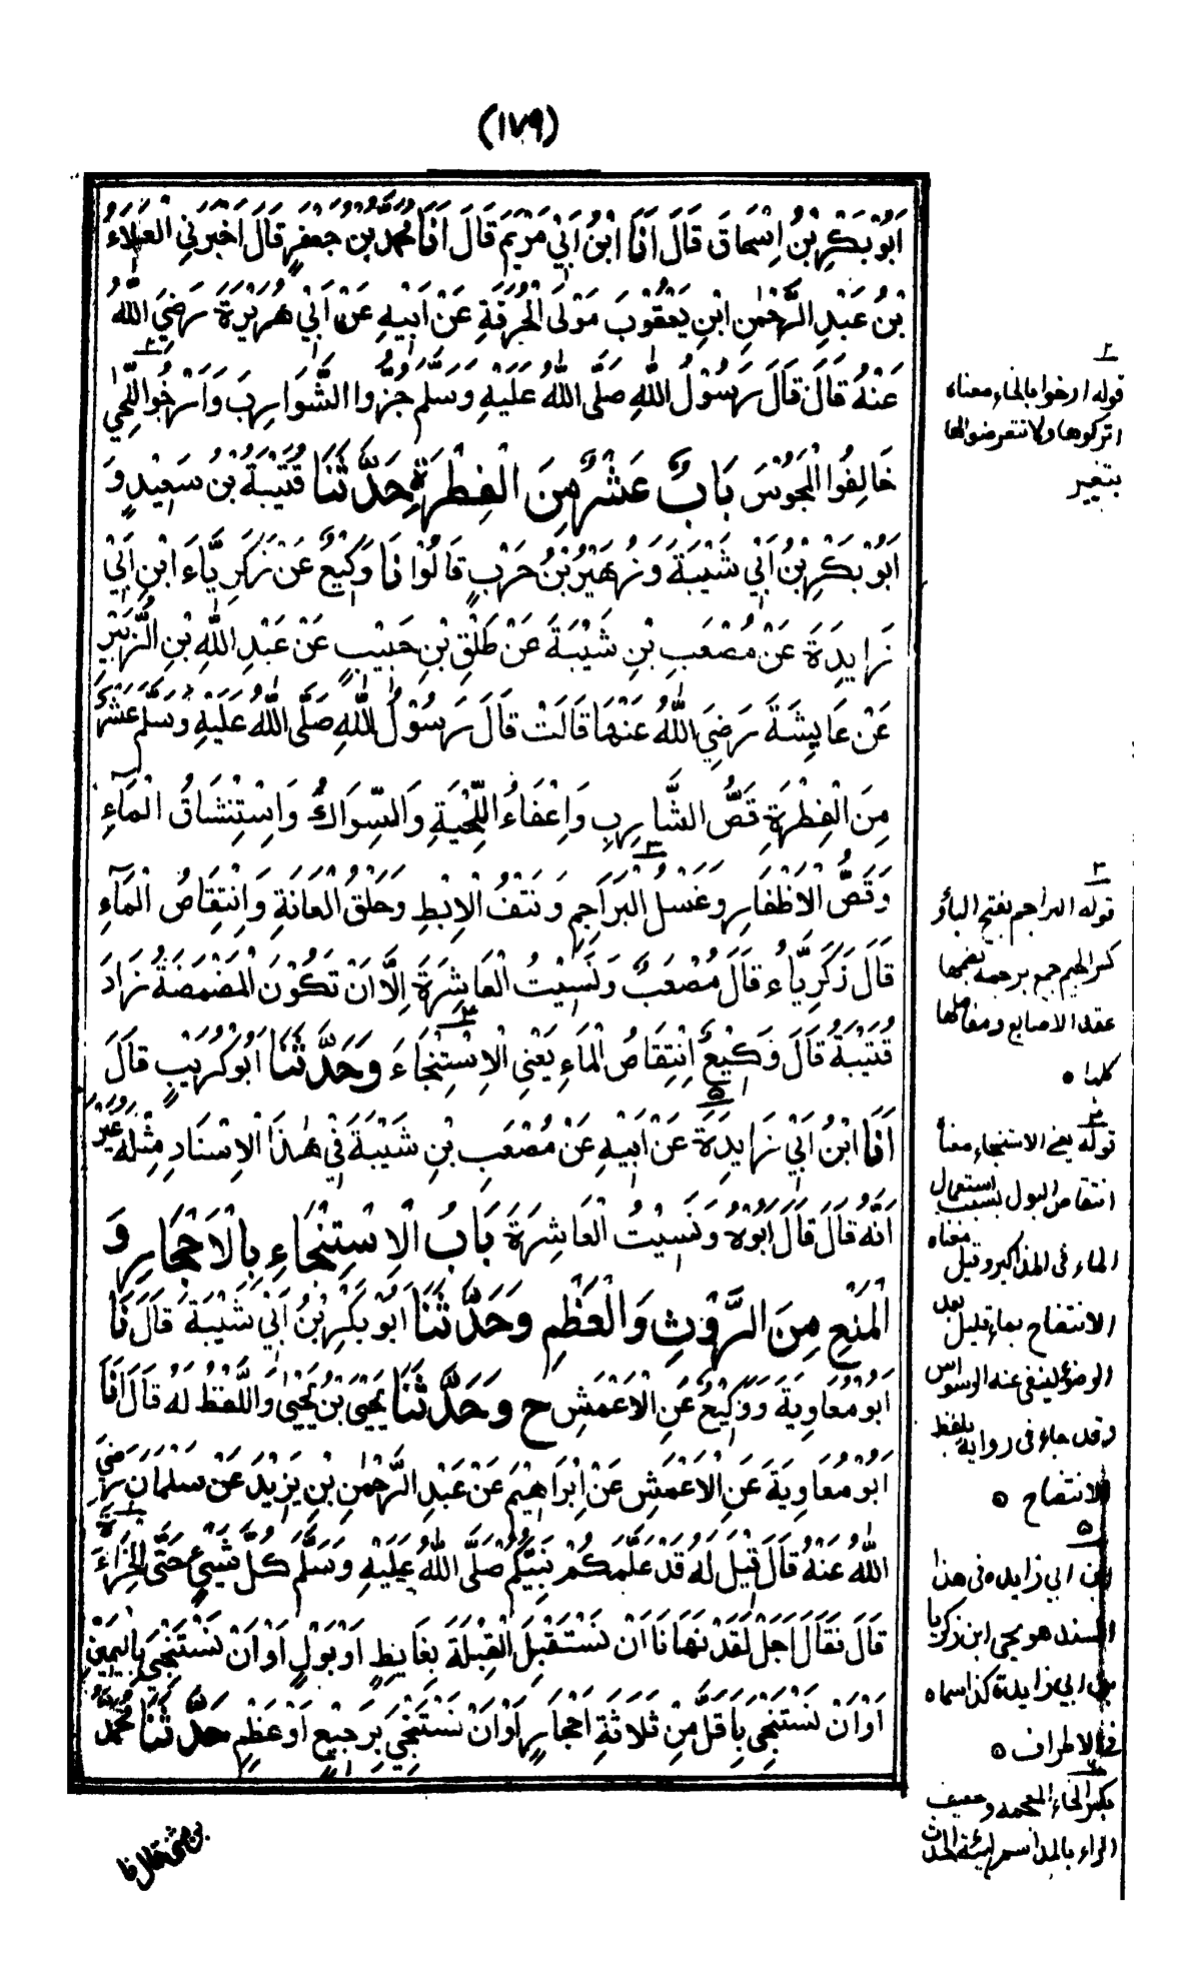 (١٧٩)
اَبُوْ بَكْرِ بْنُ اِسْحَاقَ قَالَ اَنَا ابْنُ اَبِيْ مَرْيَمَ قَالَ اَنَا مُحَمَّدُ بْنُ جَعْفَرٍ قَالَ اَخْبَرَنِي الْعَلَاءُ
بْنُ عَبْدِ الرَّحْمٰنِ ابْنِ يَعْقُوْبَ مَوْلَى الْحُرَقَةِ عَنْ اَبِيْهِ عَنْ اَبِيْ هُرَيْرَةَ رَضِيَ اللّٰهُ
عَنْهُ قَالَ قَالَ رَسُوْلُ اللّٰهِ صَلَّى اللّٰهُ عَلَيْهِ وَسَلَّمَ جُزُّوا الشَّوَارِبَ وَاَرْخُوا اللِّحٰي
خَالِفُوا الْمَجُوْسَ بَابٌ عَشْرٌ مِنَ الْفِطْرَةِ حَدَّثَنَا قُتَيْبَةُ بْنُ سَعِيْدٍ وَ
اَبُوْ بَكْرِ بْنُ اَبِيْ شَيْبَةَ وَزُهَيْرُ بْنُ حَرْبٍ قَالُوْا نَا وَكِيْعٌ عَنْ زَكَرِيَّاءَ ابْنِ اَبِيْ
زَايِدَةَ عَنْ مُصْعَبِ بْنِ شَيْبَةَ عَنْ طَلْقِ بْنِ حَبِيْبٍ عَنْ عَبْدِ اللّٰهِ بْنِ الزُّبَيْرِ
عَنْ عَايِشَةَ رَضِيَ اللّٰهُ عَنْهَا قَالَتْ قَالَ رَسُوْلُ اللّٰهِ صَلَّى اللّٰهُ عَلَيْهِ وَسَلَّمَ عَشْرٌ
مِنَ الْفِطْرَةِ قَصُّ الشَّارِبِ وَاِعْفَاءُ اللِّحْيَةِ وَالسِّوَاكُ وَاسْتِنْشَاقُ الْمَآءِ
وَقَصُّ الْاَظْفَارِ وَغَسْلُ الْبَرَاجِمِ وَنَتْفُ الْاِبْطِ وَحَلْقُ الْعَانَةِ وَانْتِقَاصُ الْمَآءِ
قَالَ زَكَرِيَّاءُ قَالَ مُصْعَبٌ وَنَسِيْتُ الْعَاشِرَةَ اِلَّا اَنْ تَكُوْنَ الْمَضْمَضَةُ زَادَ
قُتَيْبَةُ قَالَ وَكِيْعٌ اِنْتِقَاصُ الْمَاءِ يَعْنِي الْاِسْتِنْجَاءَ وَحَدَّثَنَا اَبُوْ كُرَيْبٍ قَالَ
اَنَا ابْنُ اَبِيْ زَايِدَةَ عَنْ اَبِيْهِ عَنْ مُصْعَبِ بْنِ شَيْبَةَ فِيْ هٰذَا الْاِسْنَادِ مِثْلَهُ غَيْرَ
اَنَّهُ قَالَ قَالَ اَبُوْهُ وَنَسِيْتُ الْعَاشِرَةَ بَابُ الْاِسْتِنْجَاءِ بِالْاَحْجَارِ وَ
الْمَنْعِ مِنَ الرَّوْثِ وَالْعَظْمِ وَحَدَّثَنَا اَبُوْ بَكْرِ بْنُ اَبِيْ شَيْبَةَ قَالَ نَا
اَبُوْ مُعَاوِيَةَ وَوَكِيْعٌ عَنِ الْاَعْمَشِ ح وَحَدَّثَنَا يَحْيَى بْنُ يَحْيٰى وَاللَّفْظُ لَهُ قَالَ اَنَا
اَبُوْ مُعَاوِيَةَ عَنِ الْاَعْمَشِ عَنْ اِبْرَاهِيْمَ عَنْ عَبْدِ الرَّحْمٰنِ بْنِ يَزِيْدَ عَنْ سَلْمَانَ رَضِيَ
اللّٰهُ عَنْهُ قَالَ قِيْلَ لَهُ قَدْ عَلَّمَكُمْ نَبِيُّكُمْ صَلَّى اللّٰهُ عَلَيْهِ وَسَلَّمَ كُلَّ شَيْءٍ حَتَّى الْخِرَاءَةَ
قَالَ فَقَالَ اَجَلْ لَقَدْ نَهَانَا اَنْ نَسْتَقْبِلَ الْقِبْلَةَ بِغَايِطٍ اَوْ بَوْلٍ اَوْ اَنْ نَسْتَنْجِيَ بِالْيَمِيْنِ
اَوْ اَنْ نَسْتَنْجِيَ بِاَقَلَّ مِنْ ثَلَاثَةِ اَحْجَارٍ اَوْ اَنْ نَسْتَنْجِيَ بِرَجِيْعٍ اَوْ عَظْمٍ حَدَّثَنَا مُحَمَّدُ
بن مثنى قال نا
٢
قوله ارخوا بالخاء معناه
اتركوها ولا تتعرضوا لها
بتغيير
٣
قوله البراجم بفتح الباء و
كسر الجيم جمع برجمة بضمها
عقد الاصابع ومفاصلها
كلها ٥
٤
قوله يعني الاستنجاء معناه
انتقاص البول بسبب استعمال
الماء في المذاكير وقيل معناه
الانتضاح بماء قليل بعد
الوضوء لينفى عنه الوسواس
وقد جاء في رواية بلفظ
الانتضاح ٥
٥
ابن ابي زايده في هذا
السند هو يحيى ابن زكريا
بن ابي زايدة كذا سماه
في الاطراف ٥
٦
بكسر الخاء المعجمة وتخفيف
الراء بالمد اسم لهيئة الحدث